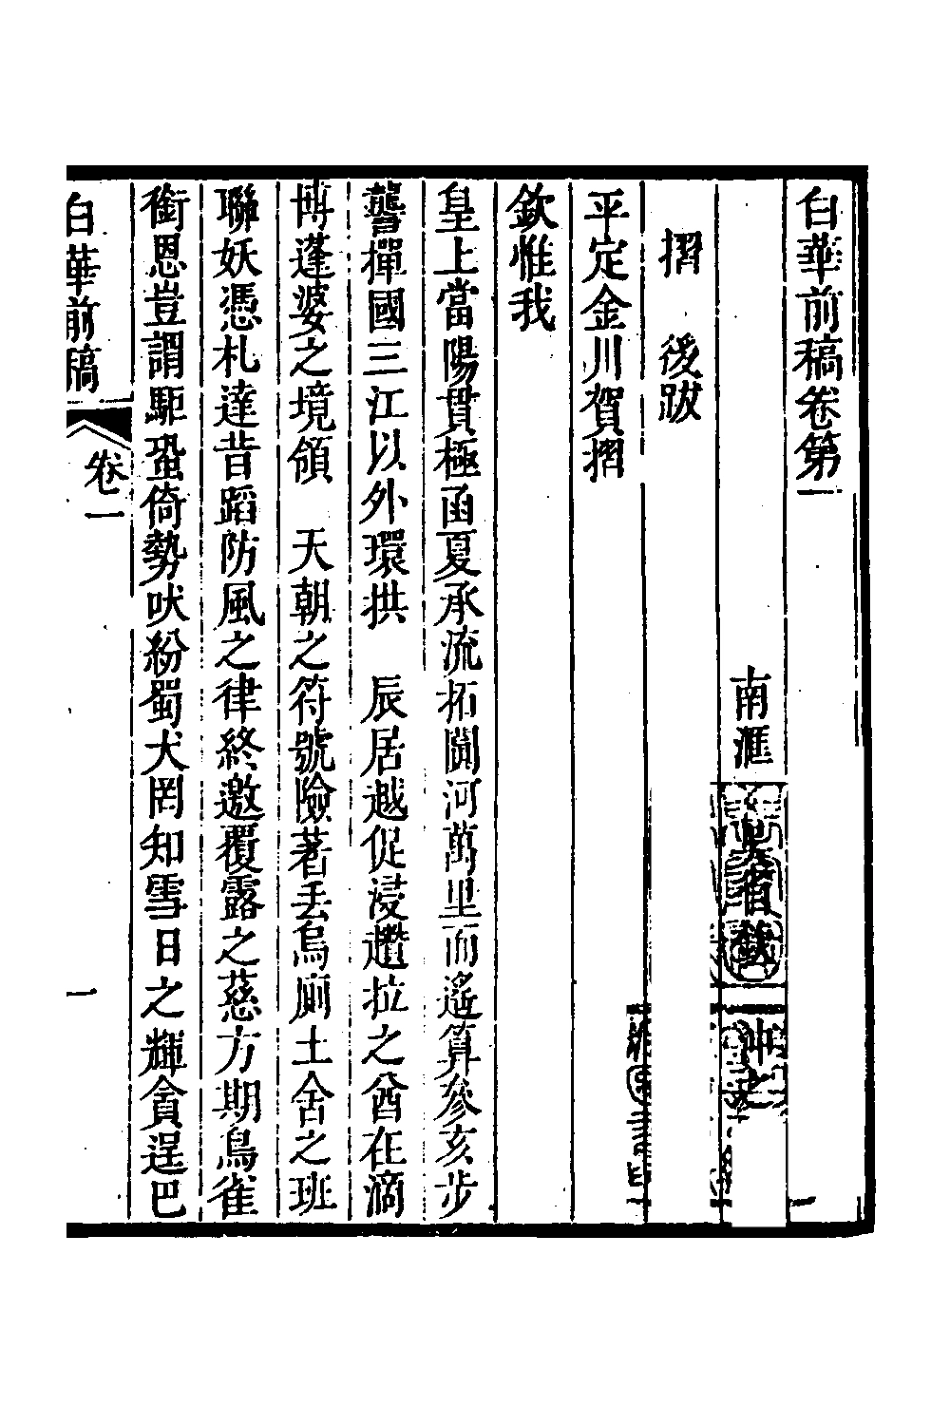 白華前稿卷第一
南滙吳省欽沖之
摺　後跋
平定金川賀摺
欽惟我
皇上當陽貫極函夏承流拓闓河萬里而遙算參亥步
讋撣國三江以外環拱　辰居越促浸趲拉之酋在滴
博蓬婆之境領　天朝之符號險著丟烏廁土舍之班
聯妖憑札達昔蹈防風之律終邀覆露之慈方期鳥雀
銜恩豈謂駏蛩倚勢吠紛蜀犬罔知雪日之輝貪逞巴
白華前稿　卷一　一